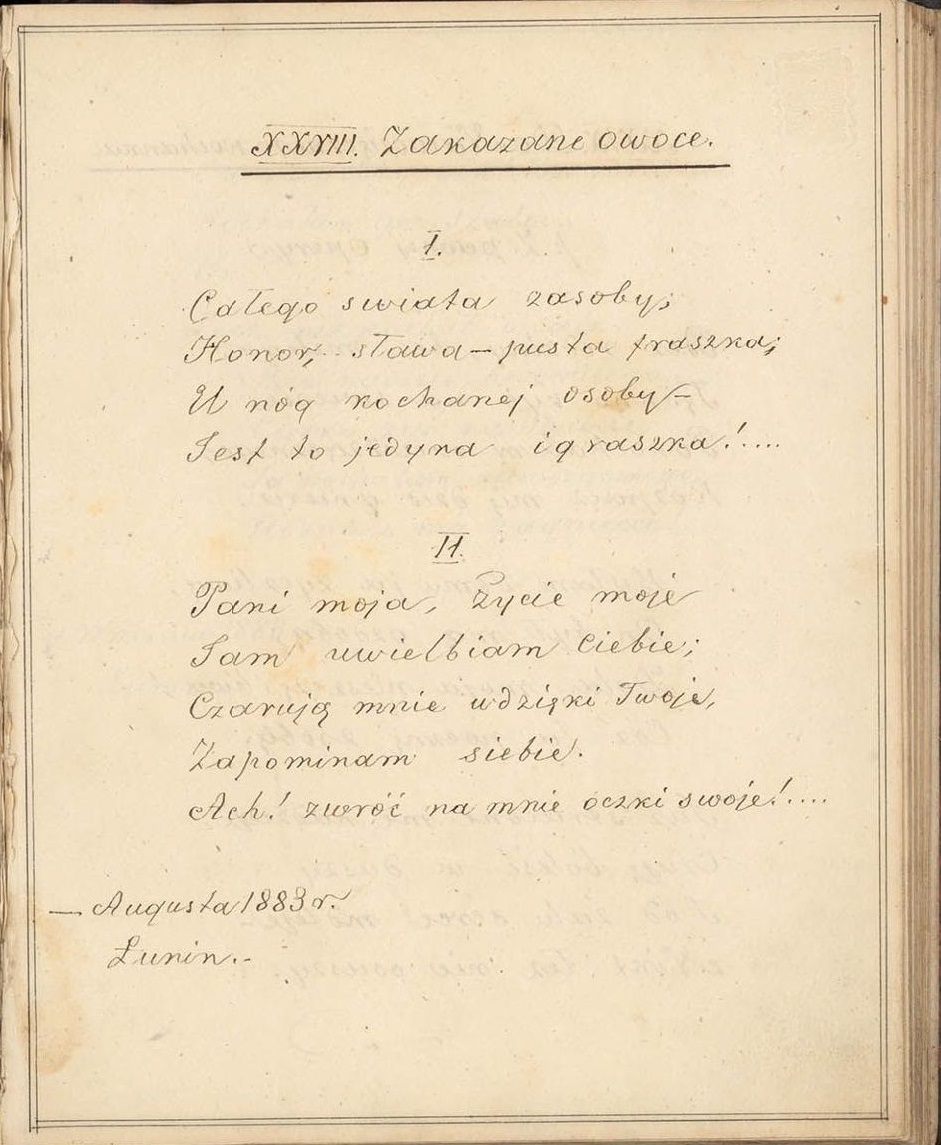 XXVIII. Zakazane owoce.
I.
Całego swiata zasoby;
Honor, sława – pusta fraszka;
U nóg kochanej osoby –
Jest to jedyna igraszka!....
II.
Pani moja, życie moje
Sam uwielbiam Ciebie;
Czarują mnie wdzięki Twoje,
Zapominam siebie.
Ach! zwróć na mnie oczki swoje!....
— Augusta 1883 r.
Łunin.-